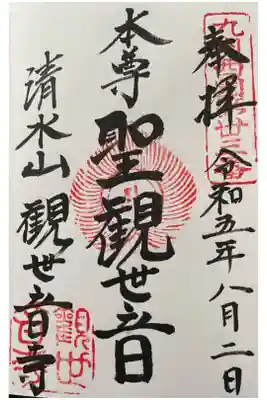 奉拝 令和五年八月二日
本尊 聖観世音
清水山 観世音寺